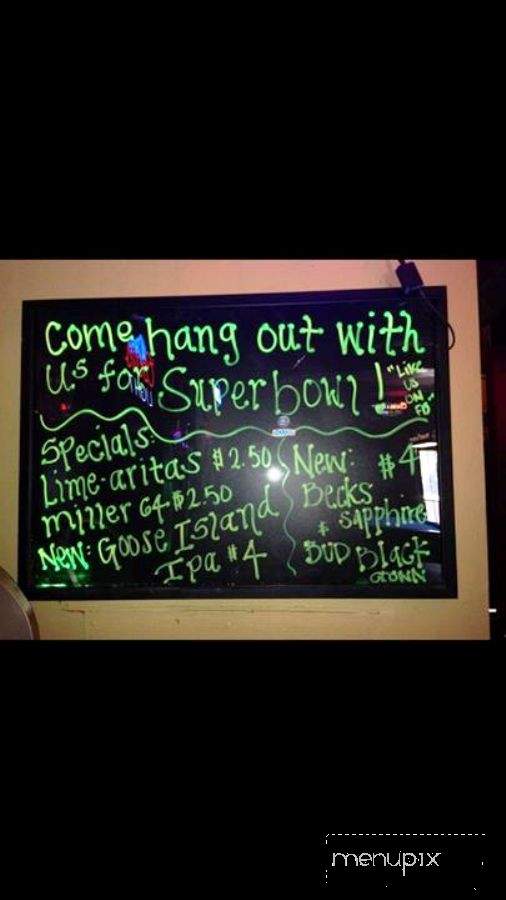 Come hang out with
us for Superbowl!
"Like
US
ON
FB"
Specials:
Lime-aritas $2.50
Miller 64 $2.50
New: Goose Island
Ipa $4
New: $4
Becks
& Sapphire
BUD Black
CROWN
menupix